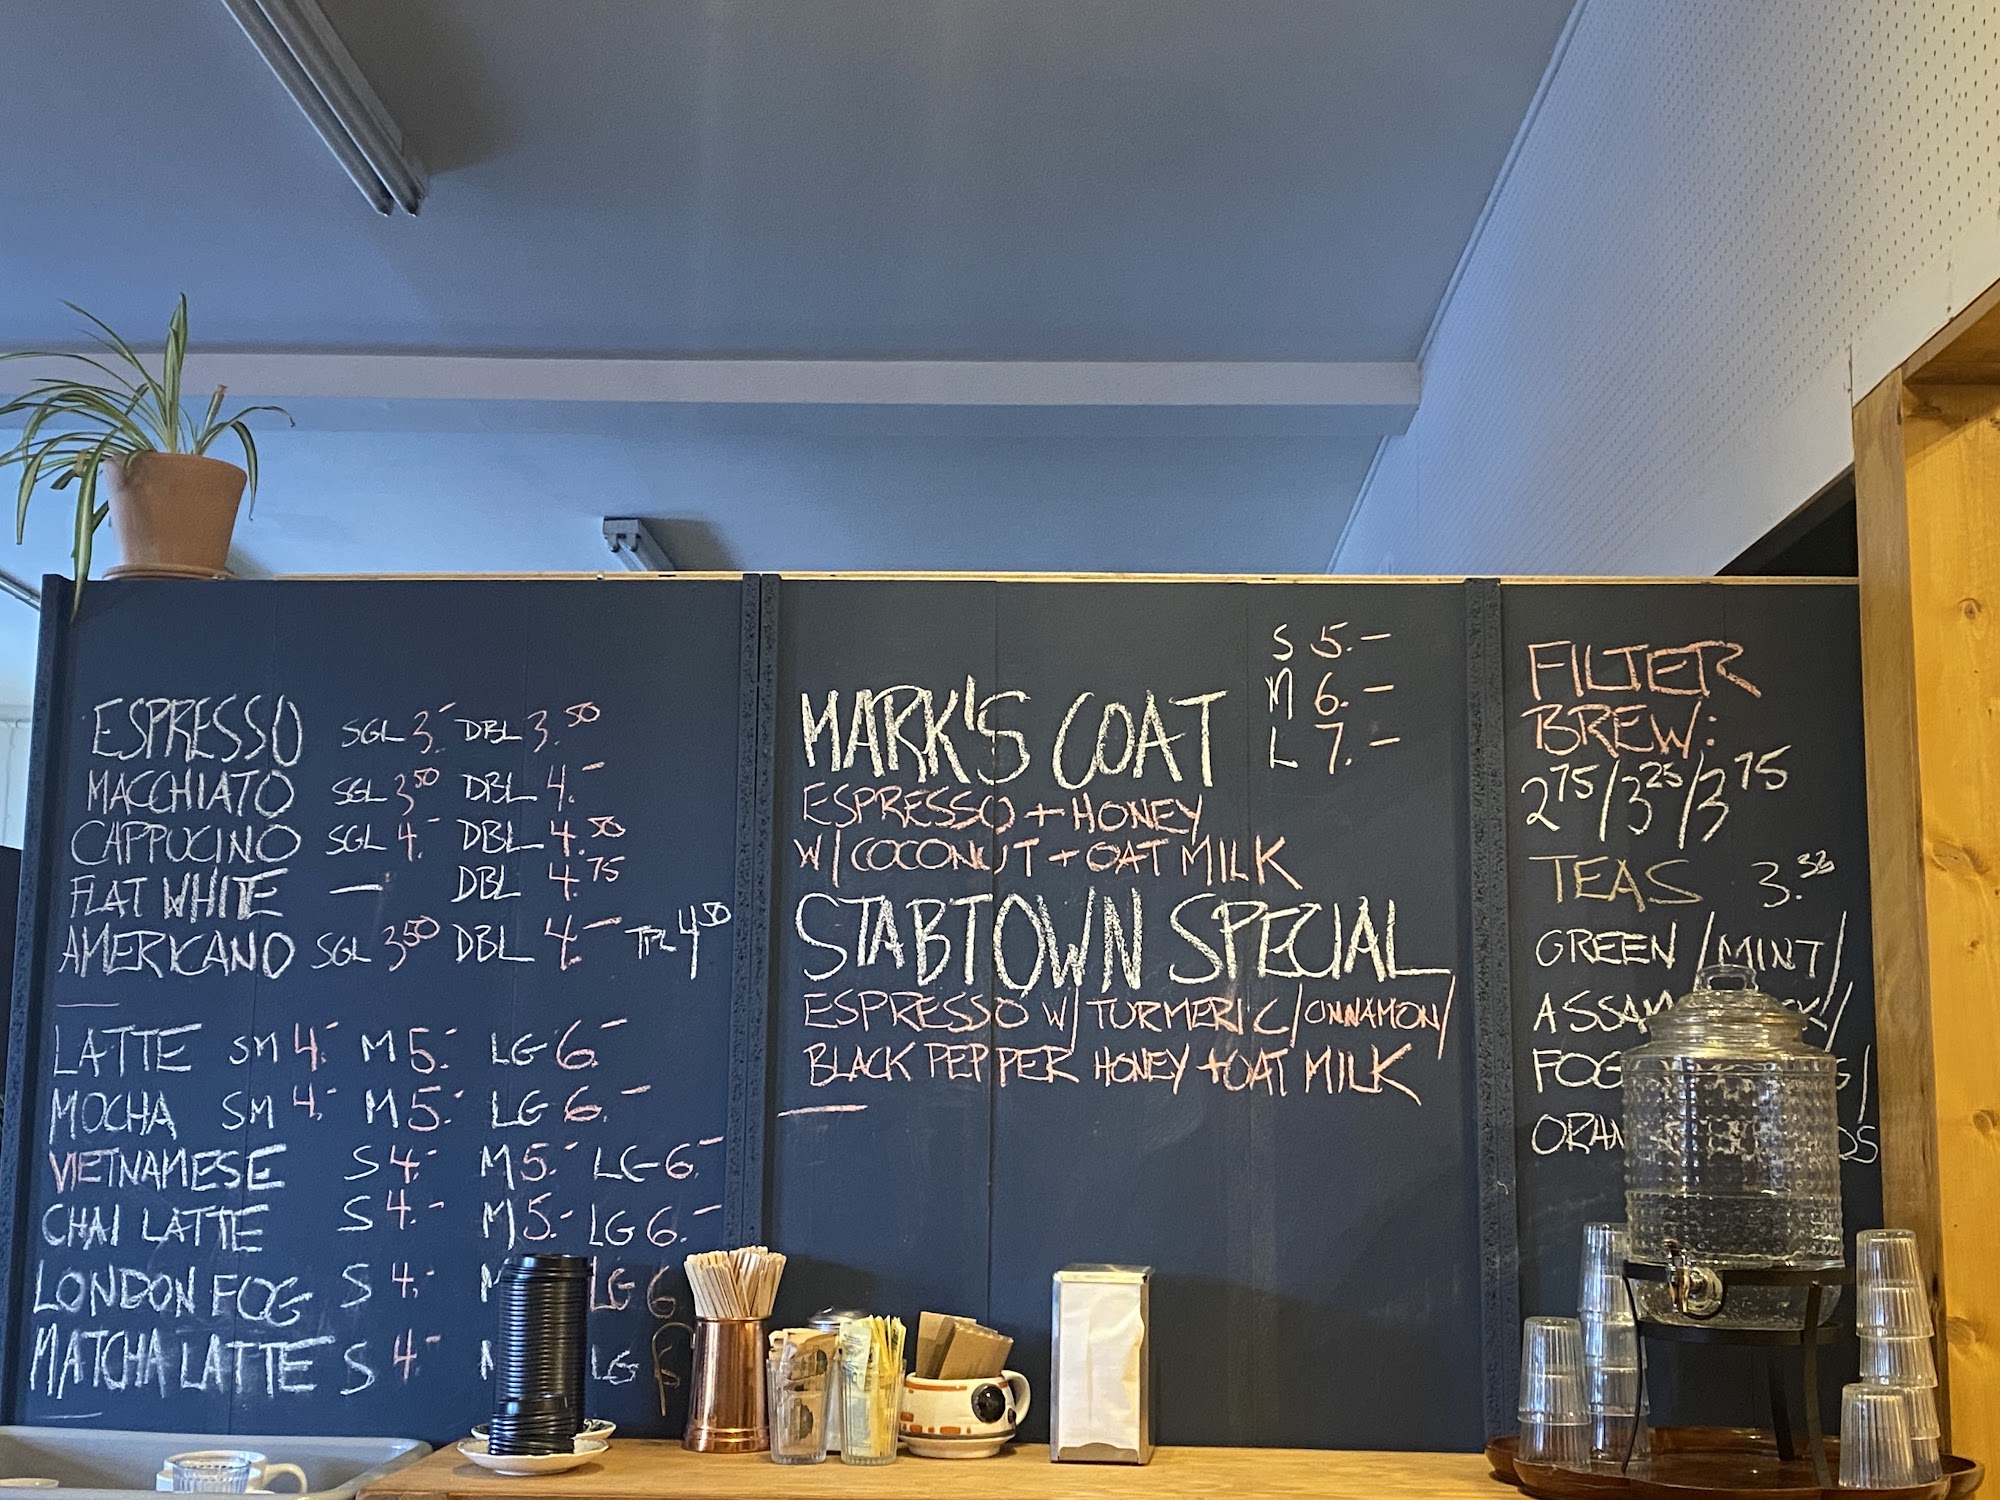 ESPRESSO SGL 3.- DBL 3.50
MACCHIATO SGL 3.50 DBL 4.-
CAPPUCINO SGL 4.- DBL 4.50
FLAT WHITE — DBL 4.75
AMERICANO SGL 3.50 DBL 4.- TPL 4.50
LATTE SM 4.- M 5.- LG 6.-
MOCHA SM 4.- M 5.- LG 6.-
VIETNAMESE S 4.- M 5.- LG 6.-
CHAI LATTE S 4.- M 5.- LG 6.-
LONDON FOG S 4.- LG 6
MATCHA LATTE S 4.- LG
S 5.-
M 6.-
L 7.-
MARK'S COAT
ESPRESSO + HONEY
W/ COCONUT + OAT MILK
STABTOWN SPECIAL
ESPRESSO W/ TURMERIC/CINNAMON/
BLACK PEPPER HONEY + OAT MILK
FILTER
BREW:
2 75/3 25/3 75
TEAS 3.
GREEN / MINT/